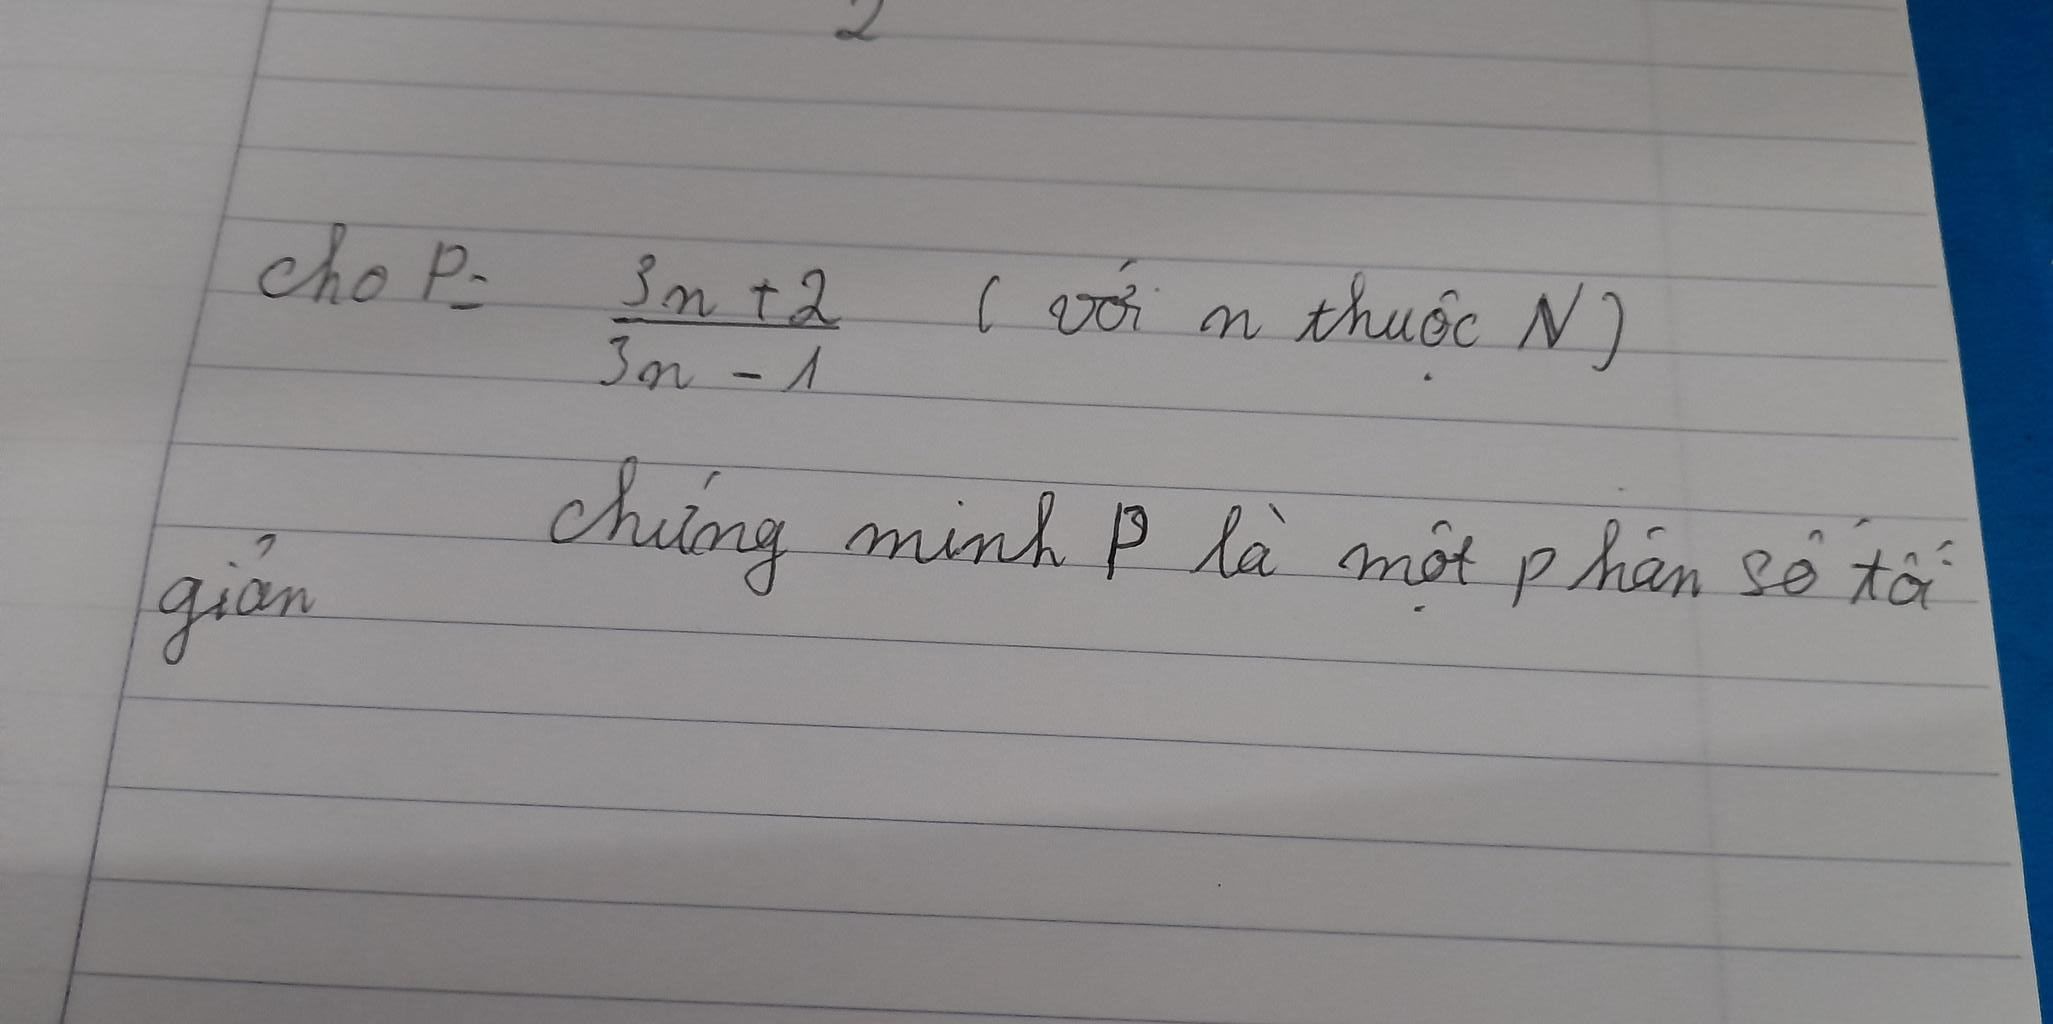 2
cho P = \frac{3n + 2}{3n - 1} ( với n thuộc N )
chứng minh P là một phân số tối
giản